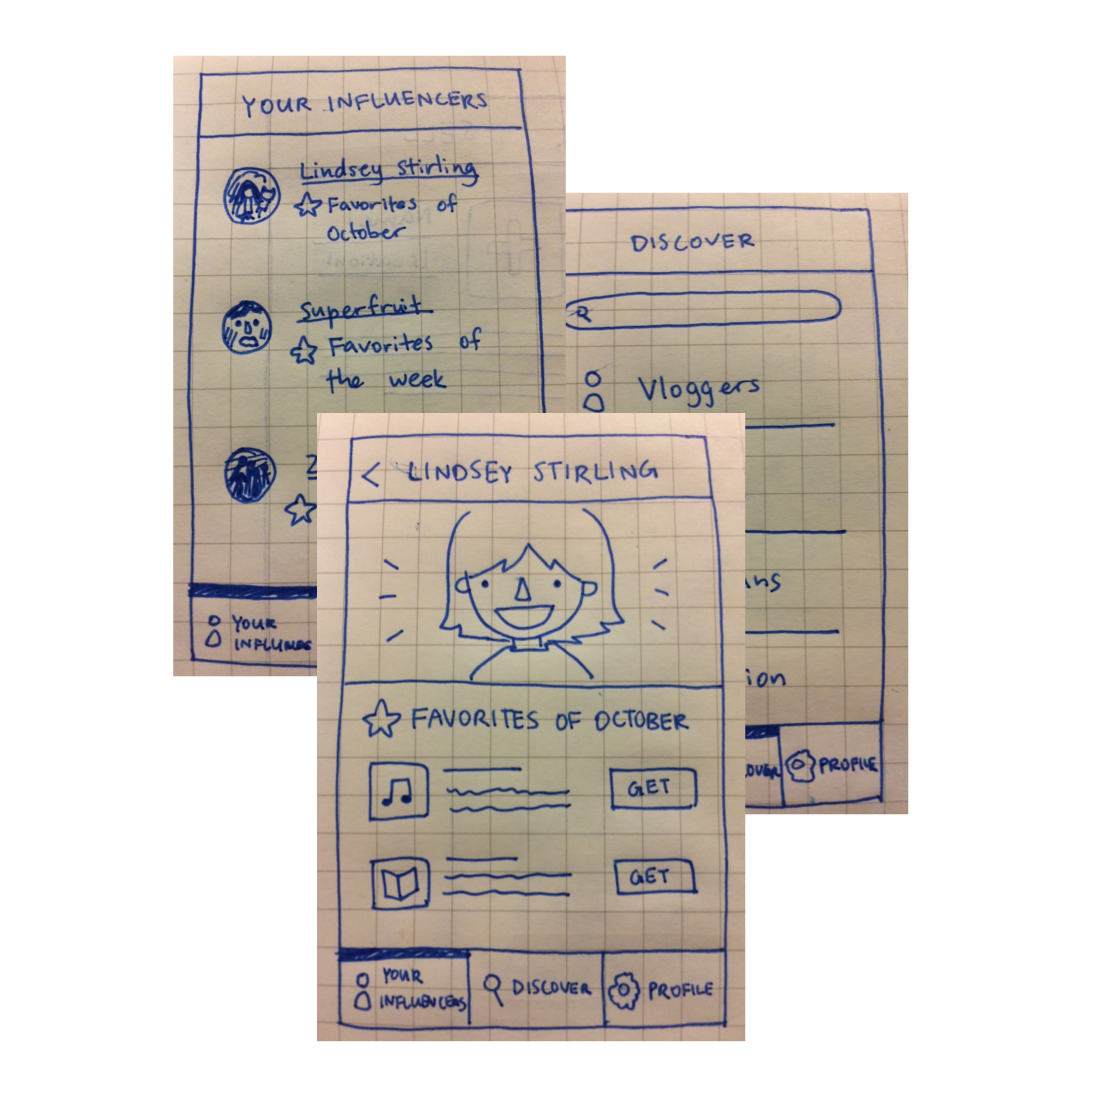 YOUR INFLUENCERS
Lindsey Stirling
Favorites of
October
Superfruit
Favorites of
the week
YOUR
DISCOVER
Vloggers
PROFILE
< LINDSEY STIRLING
FAVORITES OF OCTOBER
GET
GET
YOUR
INFLUENCERS
DISCOVER
PROFILE